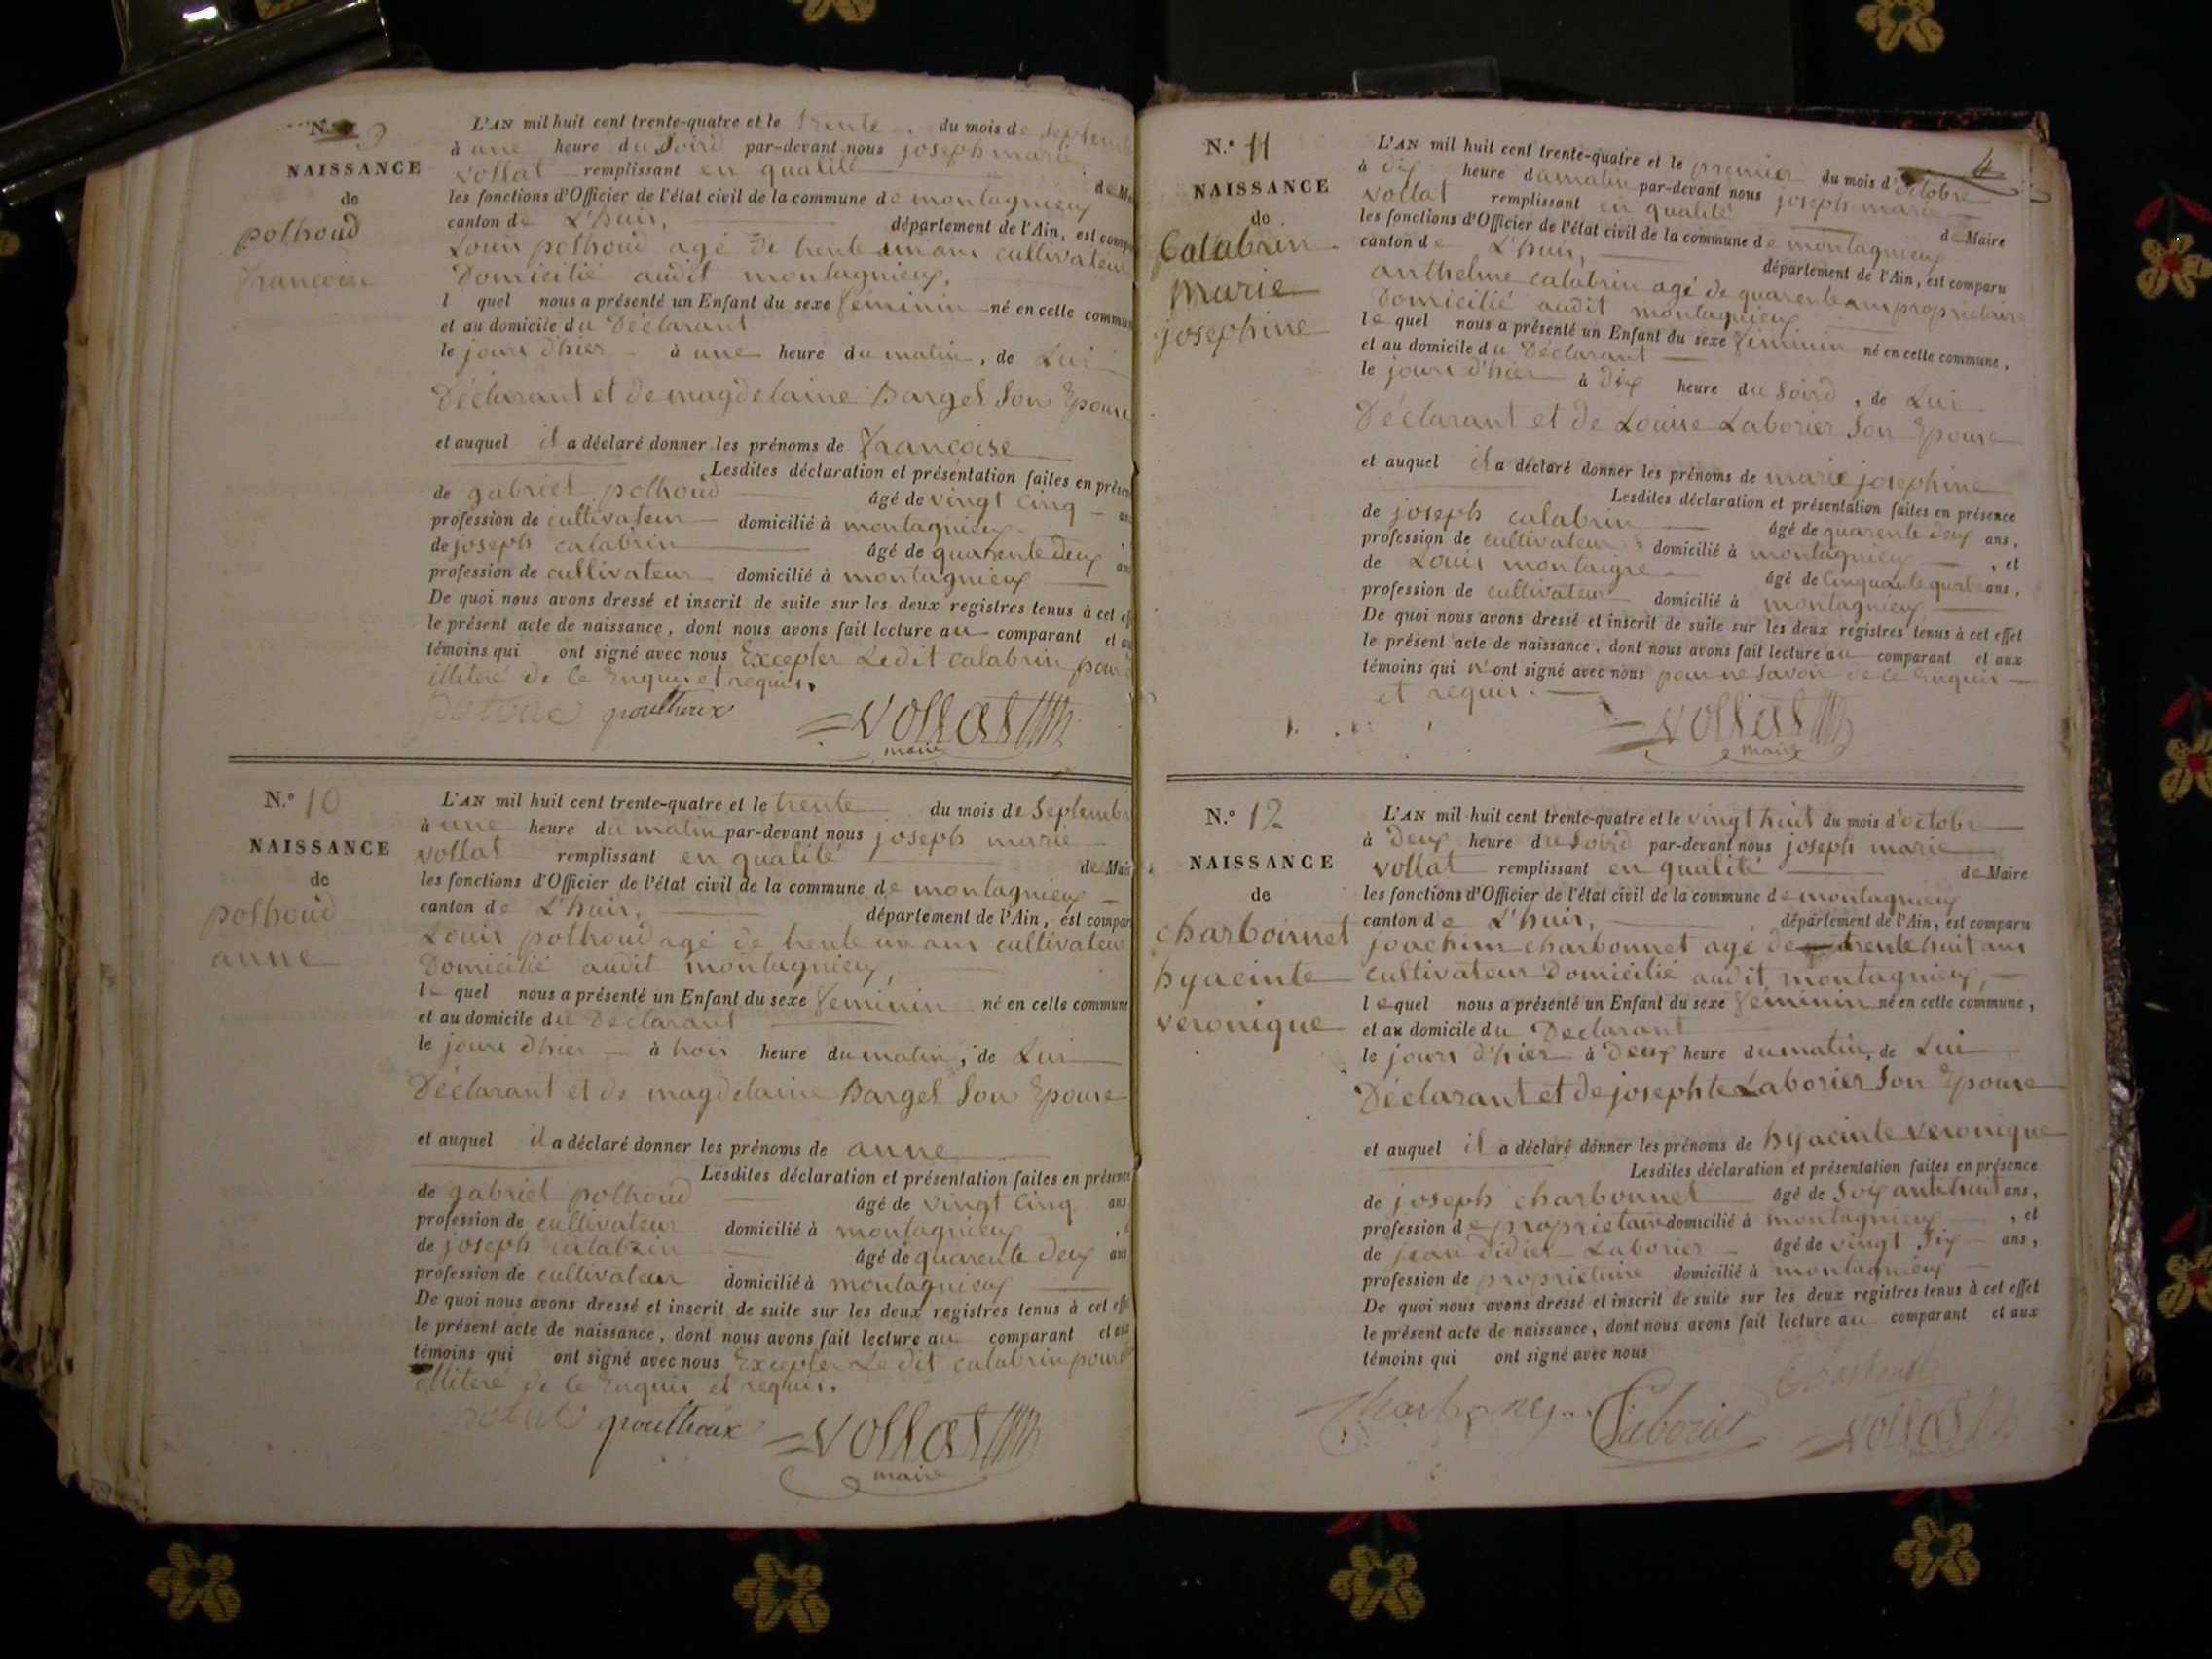 N.° 9
NAISSANCE
de
pothoud
francoise
L'AN mil huit cent trente-quatre et le trente du mois de Septem
à une heure du Soird par-devant nous joseph marie
vollat remplissant en qualité de Ma
les fonctions d'Officier de l'état civil de la commune de montagnieux
canton de L'huis, département de l'Ain, est comp
Louis pothoud agé de trente un ans cultivateur
Domicilié audit montagnieux,
l quel nous a présenté un Enfant du sexe feminin né en cette commun
et au domicile du Déclarant
le jours d'hier à une heure du matin, de Lui
Déclarant et de magdelaine Barget Son Epouse
et auquel il a déclaré donner les prénoms de francoise
Lesdites déclaration et présentation faites en présen
de gabriel pothoud âgé de vingt cinq ans
profession de cultivateur domicilié à montagnieux
de joseph calabrin âgé de quarente deux ans
profession de cultivateur domicilié à montagnieux
De quoi nous avons dressé et inscrit de suite sur les deux registres tenus à cet eff
le présent acte de naissance, dont nous avons fait lecture au comparant et au
témoins qui ont signé avec nous Excepter Ledit calabrin pour
illiteré de ce Enquis et requis.
poutheux vollat
maire
N.° 10
NAISSANCE
de
pothoud
anne
L'AN mil huit cent trente-quatre et le trente du mois de Septembr
à une heure du matin par-devant nous joseph marie
vollat remplissant en qualité de Mair
les fonctions d'Officier de l'état civil de la commune de montagnieux
canton de L'huis, département de l'Ain, est compar
Louis pothoud agé de trente un ans cultivateur
Domicilié audit montagnieux,
le quel nous a présenté un Enfant du sexe feminin né en cette commune
et au domicile du Declarant
le jours d'hier à trois heure du matin, de Lui
Déclarant et de magdelaine Barget Son Epouse
et auquel il a déclaré donner les prénoms de anne
Lesdites déclaration et présentation faites en présence
de gabriel pothoud âgé de vingt cinq ans
profession de cultivateur domicilié à montagnieux
de joseph calabrin âgé de quarente deux ans
profession de cultivateur domicilié à montagnieux
De quoi nous avons dressé et inscrit de suite sur les deux registres tenus à cet effe
le présent acte de naissance, dont nous avons fait lecture au comparant et aux
témoins qui ont signé avec nous Excepter Ledit calabrin pour
illiteré de ce Enquis et requis.
poutheux vollat
maire
4
N.° 11
NAISSANCE
de
Calabrin
Marie
josephine
L'AN mil huit cent trente-quatre et le premier du mois d'octobre
à dix heure du matin par-devant nous joseph marie
vollat remplissant en qualité de Maire
les fonctions d'Officier de l'état civil de la commune de montagnieux
canton de L'huis, département de l'Ain, est comparu
anthelme calabrin agé de quarente ans proprietaire
Domicilié audit montagnieux
le quel nous a présenté un Enfant du sexe feminin né en cette commune,
et au domicile du Déclarant
le jours d'hier à dix heure du Soird, de Lui
Déclarant et de Louise Laborier Son Epouse
et auquel il a déclaré donner les prénoms de marie josephine
Lesdites déclaration et présentation faites en présence
de joseph calabrin âgé de quarente deux ans,
profession de cultivateur domicilié à montagnieux, et
de Louis montaigre âgé de Cinquante quat ans,
profession de cultivateur domicilié à montagnieux
De quoi nous avons dressé et inscrit de suite sur les deux registres tenus à cet effet
le présent acte de naissance, dont nous avons fait lecture au comparant et aux
témoins qui n'ont signé avec nous pour ne Savoir de ce Enquis
et requis.
vollat
maire
N.° 12
NAISSANCE
de
charbonnet
hyacinte
veronique
L'AN mil huit cent trente-quatre et le vingt huit du mois d'octobr
à Deux heure du Soird par-devant nous joseph marie
vollat remplissant en qualité de Maire
les fonctions d'Officier de l'état civil de la commune de montagnieux
canton de L'huis, département de l'Ain, est comparu
joachim charbonnet agé de trente huit ans
cultivateur Domicilié audit montagnieux,
lequel nous a présenté un Enfant du sexe feminin né en cette commune,
et au domicile du Declarant
le jours d'hier à Deux heure du matin, de Lui
Déclarant et de josephte Laborier Son Epouse
et auquel il a déclaré donner les prénoms de hyacinte veronique
Lesdites déclaration et présentation faites en présence
de joseph charbonnet âgé de Soixante huit ans,
profession de proprietaire domicilié à montagnieux, et
de jean didier Laborier âgé de vingt Six ans,
profession de proprietaire domicilié à montagnieux
De quoi nous avons dressé et inscrit de suite sur les deux registres tenus à cet effet
le présent acte de naissance, dont nous avons fait lecture au comparant et aux
témoins qui ont signé avec nous
Laborier vollat